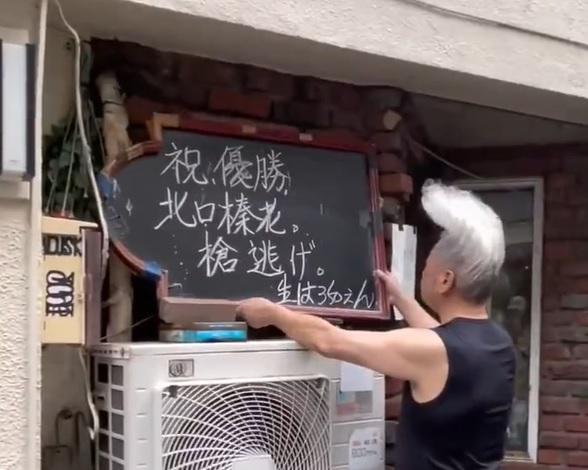 祝、優勝
北口榛花。
槍逃げ。
生は350えん